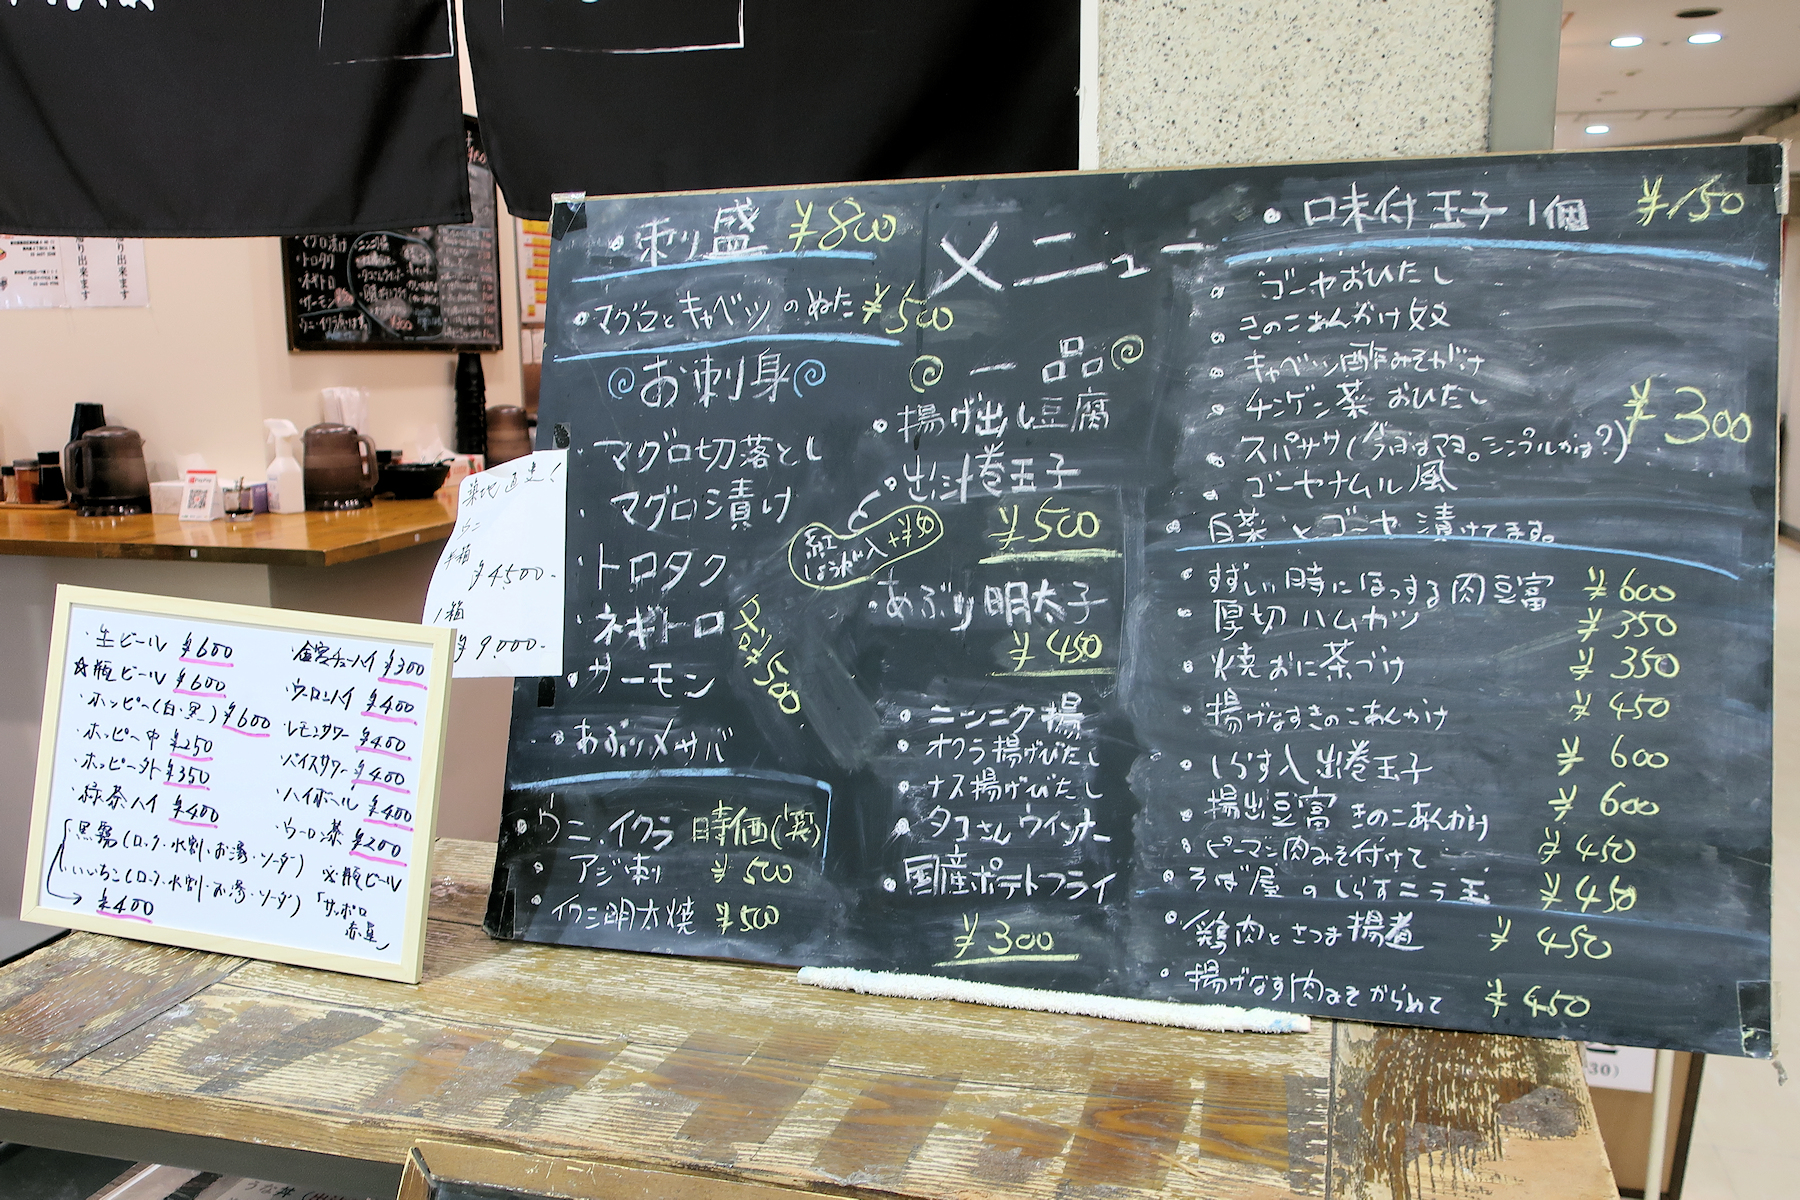 ・刺り盛 ¥800
・マグロとキャベツのぬた ¥500
お刺身
・マグロ切落とし
・マグロ漬け
・トロタク
・ネギトロ
・サーモン
・あぶり〆サバ
・ウニ、イクラ 時価(笑)
・アジ刺 ¥500
・イワシ明太焼 ¥500
メニュー
一品
・揚げ出し豆腐
・出汁巻玉子
紅しょうが入+¥50
¥500
・あぶり明太子
¥450
・ニンニク揚
・オクラ揚げびたし
・ナス揚げびたし
・タコさんウインナー
・国産ポテトフライ
¥300
・味付玉子1個 ¥150
・ゴーヤおひたし
・きのこあんかけ奴
・キャベツ酢みそがけ
・チンゲン菜おひたし
¥300
・ゴーヤナムル風
・白菜とゴーヤ漬けてます。
・すずしい時にほっする肉豆富 ¥600
・厚切ハムカツ ¥350
・焼おに茶づけ ¥350
・揚げなすきのこあんかけ ¥450
・しらす入出巻玉子 ¥600
・揚出豆富きのこあんかけ ¥600
・ピーマン肉みそ付けて ¥450
・そば屋のしらすニラ玉 ¥450
・鶏肉とさつま揚煮 ¥450
・揚げなす肉みそからめて ¥450
築地直送!
ウニ
半箱
¥4500-
1箱
¥9.000-
・生ビール ¥600
☆瓶ビール ¥600
・ホッピー(白・黒) ¥600
・ホッピー中 ¥250
・ホッピー外 ¥350
・緑茶ハイ ¥400
・黒霧(ロック・水割・お湯・ソーダ)
・いいちこ(ロック・水割・お湯・ソーダ)
¥400
・金宮チューハイ ¥300
・ウーロンハイ ¥400
・レモンサワー ¥400
・バイスサワー ¥400
・ハイボール ¥400
・ウーロン茶 ¥200
※瓶ビール
「サッポロ
赤星」